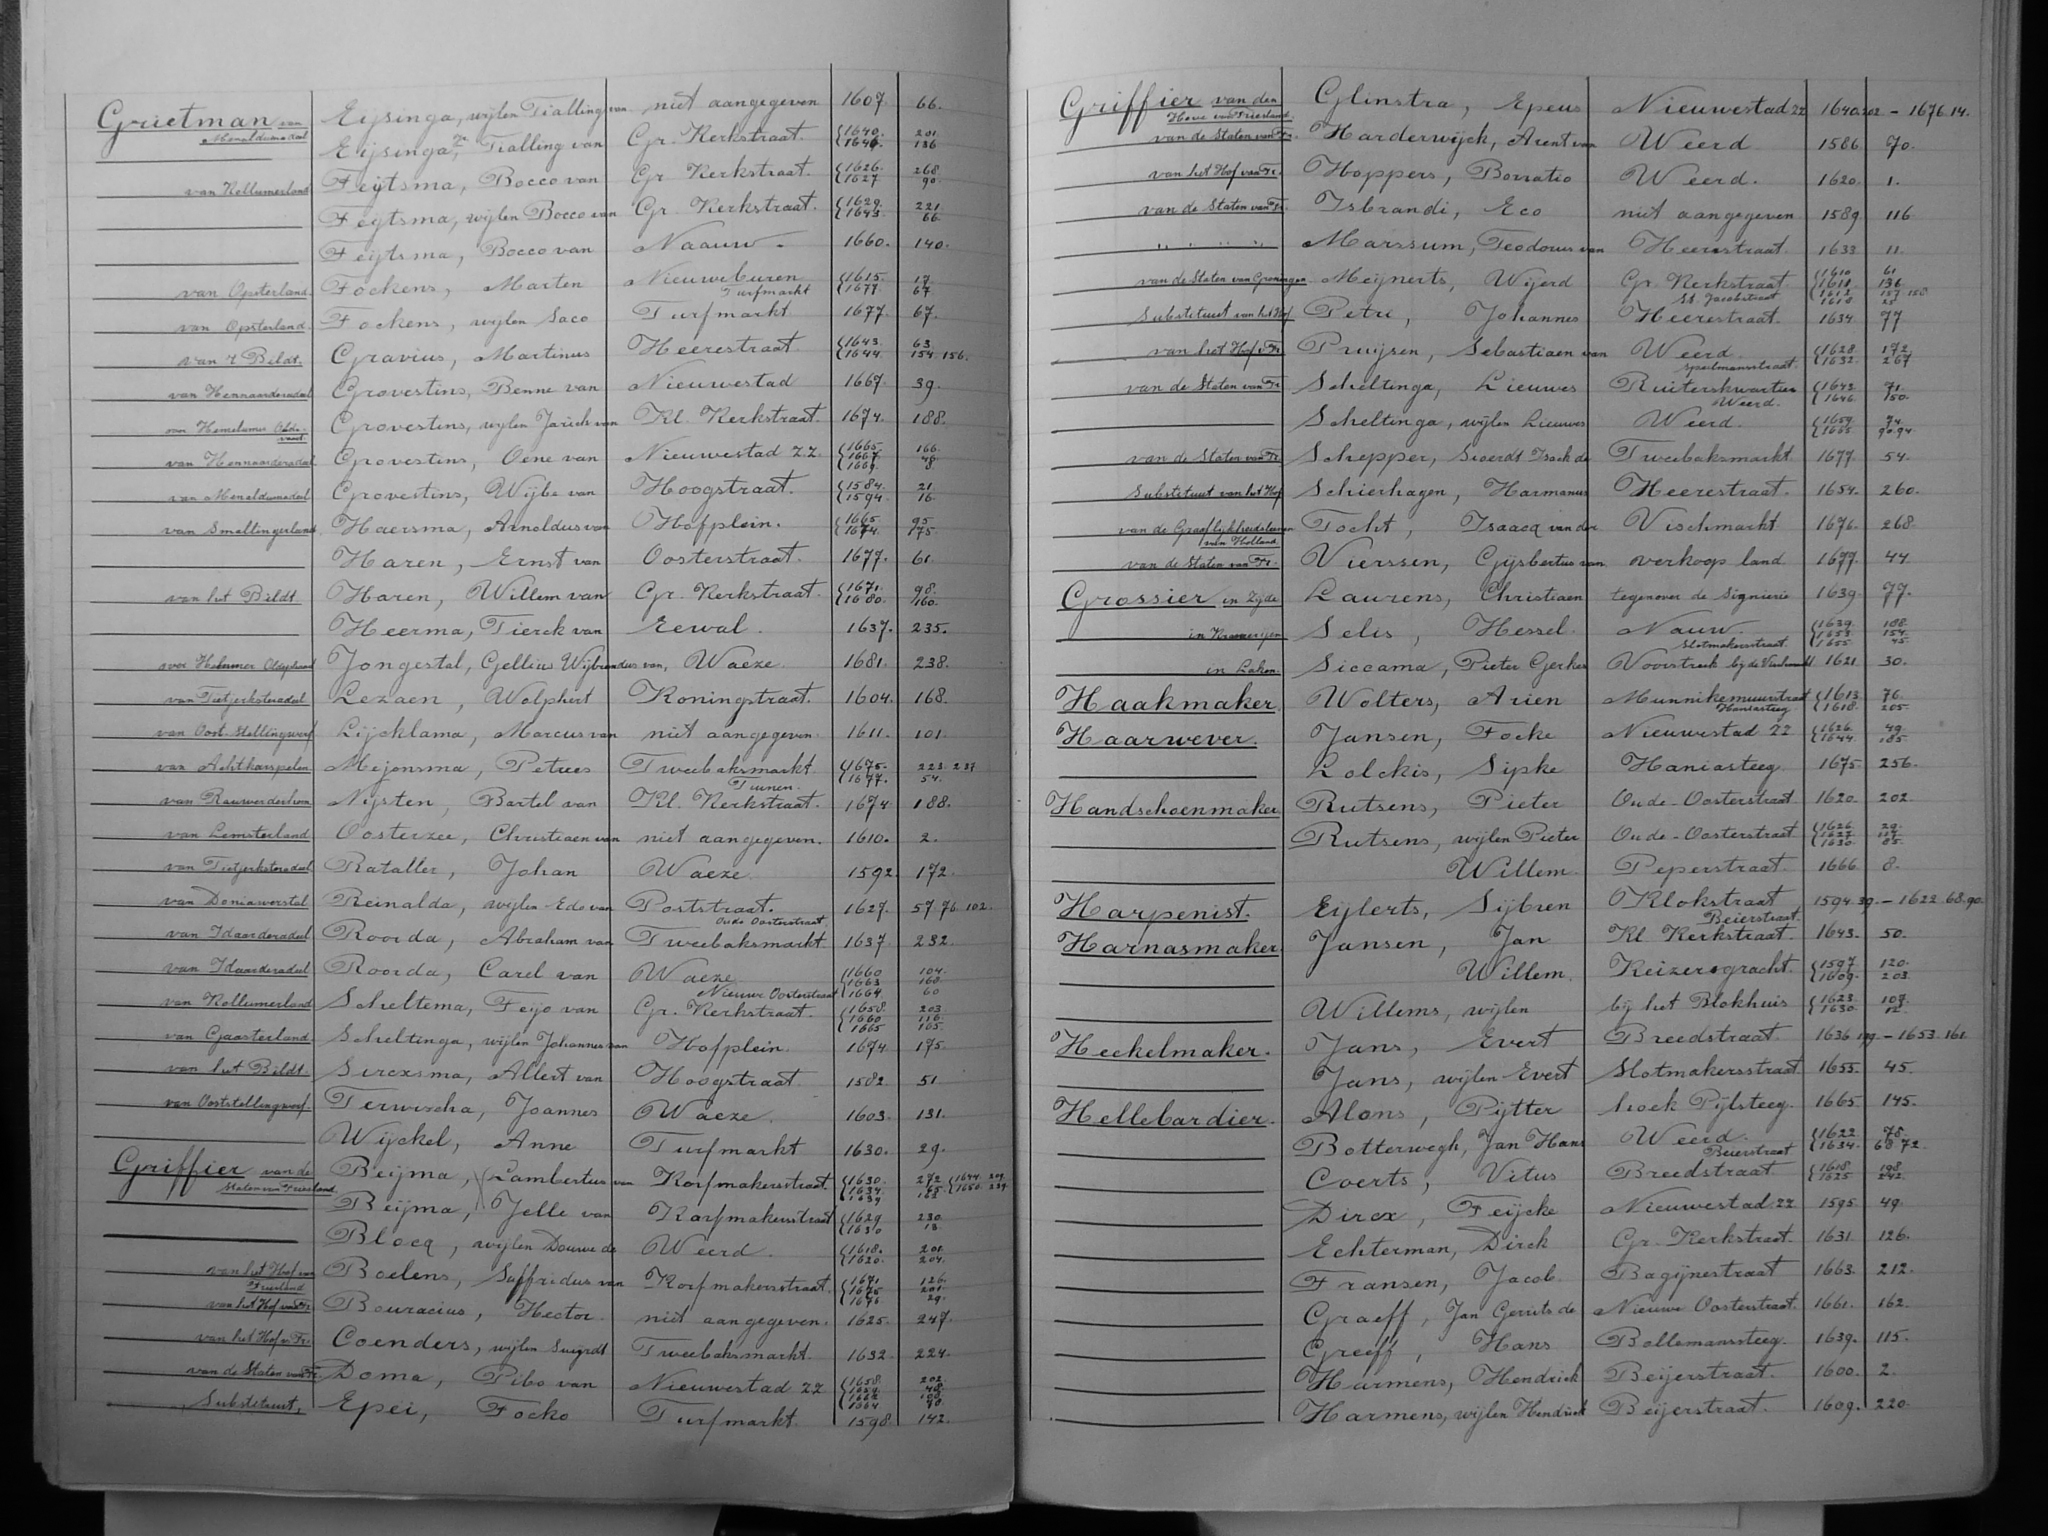 Grietman van Menaldumadeel Eijsinga, wijlen Tialling van niet aangegeven 1607 66.
Eijsinga, Tialling van Gr. Kerkstraat. 1640. 201
1646. 136
van Kollumerland Feijtsma, Bocco van Gr. Kerkstraat. 1626. 268
1627 90.
Feijtsma, wijlen Bocco van Gr. Kerkstraat. 1629. 221.
1643. 66.
Feijtsma, Bocco van Naauw. 1660. 140.
van Opsterland. Fockens, Marten Nieuweburen 1615. 17.
Turfmarkt 1677. 67.
van Opsterland. Fockens, wijlen Saco Turfmarkt 1677. 67.
van 't Bildt. Gravius, Martinus Heerestraat. 1643. 63.
1644. 154. 156.
van Hennaarderadeel Grovestins, Benne van Nieuwestad 1667. 39.
van Hemelumer Olde- Grovestins, wijlen Jarich van Kl. Kerkstraat. 1674. 188.
van Hennaarderadeel Grovestins, Oene van Nieuwestad ZZ. 1665. 166.
1667. 46
1669. 8
van Menaldumadeel Grovestins, Wijbe van Hoogstraat. 1584. 21.
1594 16.
van Smallingerland Haersma, Arnoldus van Hofplein. 1665. 95
1674. 175.
Haren, Ernst van Oosterstraat. 1677. 61.
van het Bildt. Haren, Willem van Gr. Kerkstraat. 1671. 98.
1680. 160.
Heerma, Tierck van Eewal. 1637. 235.
Jongestal, Gellius Wijbrandus van, Waeze. 1681. 238.
van Tietjerksteradeel Lezaen, Wolphert Koningstraat. 1604. 168.
van Oost-Stellingwerf Lijcklama, Marcus van niet aangegeven. 1611. 101.
van Achtkarspelen Mejonsma, Petrus Tweebaksmarkt. 1675. 223. 237
Tuinen. 1677. 54.
van Rauwerderhem Nijsten, Bartel van Kl. Kerkstraat. 1674. 188.
van Lemsterland Oosterzee, Christiaen van niet aangegeven. 1610. 2.
van Tietjerksteradeel Rataller, Johan Waeze 1592. 172.
van Doniawerstal Reinalda, wijlen Edo van Poststraat. 1627. 57 76. 102.
Oude Oosterstraat.
van Idaarderadeel Roorda, Abraham van Tweebaksmarkt. 1637 232.
van Idaarderadeel Roorda, Carel van Waeze 1660 104.
1663 168.
Nieuwe Oosterstraat 1664. 60
van Kollumerland Scheltema, Feijo van Gr. Kerkstraat. 1658. 203
1660 116.
1665 165.
van Gaasterland. Scheltinga, wijlen Johannes van Hofplein. 1674 175.
van het Bildt Sircxsma, Allert van Hoogstraat. 1582. 51
van Ooststellingwerf. Terwischa, Joannes Waeze. 1603. 131.
Wijckel, Anne Turfmarkt 1630. 29.
Griffier van de Staten van Friesland Beijma, Lambertus van Korfmakersstraat. 1630. 272 1644. 209.
1634. 65. 1656. 239.
1639 163
Beijma, Jelle van Korfmakersstraat 1629. 230.
1630 18.
Blocq, wijlen Douwe de Weerd. 1618. 201.
1620. 204.
van het Hof van Friesland Boelens, Suffridus van Korfmakersstraat. 1671. 126.
1675 201.
1676 29.
van het Hof van Fr. Bouracius, Hector. niet aangegeven. 1625. 247.
van het Hof v. Fr. Coenders, wijlen Suigrdt Tweebaksmarkt. 1632. 224.
van de Staten van Fr. Doma, Pibo van Nieuwestad ZZ 1658. 202.
1659. 48.
1662 108.
1664 90.
Substituut, Epei, Focko Turfmarkt. 1598. 142.
Griffier van den Hove van Friesland. Glinstra, Epeus Nieuwestad ZZ 1640. 202 - 1676. 14.
van de Staten van Fr. Harderwijck, Arent van Weerd 1586. 70.
van het Hof van Fr. Hoppers, Borratio Weerd. 1620. 1.
van de Staten van Fr. Isbrandi, Eco niet aangegeven 1589. 116
" " " " Marssum, Teodorus van Heerestraat. 1633 11.
van de Staten van Groningen Meijnerts, Wijerd Gr. Kerkstraat 1610 61
1611. 136
St. Jacobstraat 1612. 157 158
1618 25
Substituut van het Hof. Petri, Johannes Heerestraat. 1634. 77
van het Hof v. Fr. Pruijsen, Sebastiaen van Weerd. 1628. 172.
Speelmansstraat. 1632. 267
van de Staten van Fr. Scheltinga, Lieuwes Ruiterskwartier 1642. 71.
Weerd. 1646. 150.
Scheltinga, wijlen Lieuwes Weerd. 1659. 74.
1665 90. 94.
van de Staten van Fr. Schepper, Sioerdt Isack de Tweebaksmarkt 1677. 54.
Substituut van het Hof Schierhagen, Harmanus Heerestraat. 1654. 260.
van de Graaflijkheidslanden van Holland Tocht, Isaacq van der Vischmarkt 1676. 268.
van de Staten van Fr. Vierssen, Gijsbertus van verkoop land. 1677. 44.
Grossier in Zijde Laurens, Christiaen tegenover de Signierie 1639. 77.
Selis, Hessel. Nauw. 1639. 188.
1653. 154.
Slotmakersstraat. 1655 45.
in Laken. Siccama, Pieter Gerkes Voorstreek bij de Vischmarkt 1621. 30.
Haakmaker. Wolters, Arien Munnikemuurstraat 1613. 76.
Haniasteeg 1618. 205.
Haarwever. Jansen, Focke Nieuwestad ZZ 1626. 49.
1644 185.
Lolckis, Sipke Haniasteeg. 1675 256.
Handschoenmaker Rutsens, Pieter Oude-Oosterstraat. 1620. 202
Rutsens, wijlen Pieter Oude-Oosterstraat 1626. 29.
1627. 117.
1630. 85.
Willem. Peperstraat. 1666 8.
Harpenist. Eijlerts, Sijbren Klokstraat 1594. 39. - 1622. 68. 90.
Beierstraat.
Harnasmaker Jansen, Jan Kl. Kerkstraat. 1643. 50.
Willem. Keizersgracht. 1597. 120.
1609. 203.
Willems, wijlen bij het Blokhuis 1623. 107.
1630. 12.
Heckelmaker. Jans, Evert Breedstraat. 1636 179. - 1653. 161.
Jans, wijlen Evert Slotmakersstraat 1655. 45.
Hellebardier. Alons, Pijtter hoek Pijlsteeg. 1665. 145.
Botterwegh, Jan Hans Weerd. 1622. 75.
Beierstraat 1634. 68 72.
Coerts, Vitus Breedstraat 1618. 198.
1625 242.
Dircx, Feijcke Nieuwestad ZZ 1595 49.
Echterman, Dirck Gr. Kerkstraat. 1631. 126.
Fransen, Jacob. Bagijnestraat 1663. 212.
Graeff, Jan Gerrits de Nieuwe Oosterstraat. 1661. 162.
Greeff, Hans Bollemanssteeg. 1639. 115.
Harmens, Hendrick Beijerstraat. 1600. 2.
Harmens, wijlen Hendrick Beijerstraat. 1609. 220.